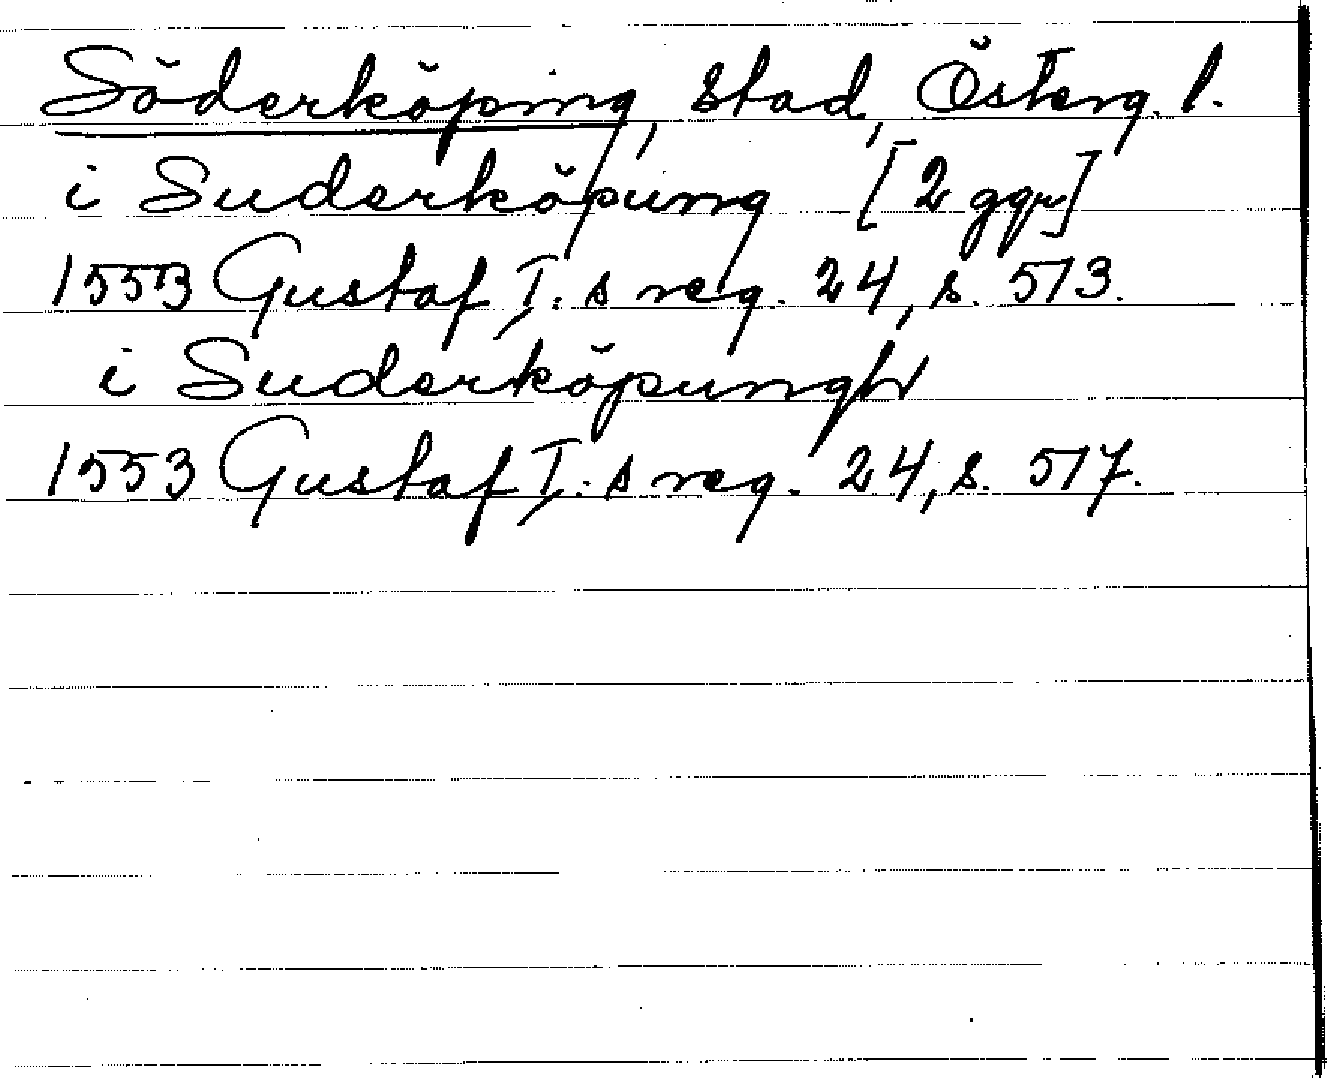 Söderköping, stad, Österg. l.
i Suderköpung [2 ggr]
1553 Gustaf I:s reg. 24, s. 513.
i Suderköpungh
1553 Gustaf I:s reg. 24, s. 517.